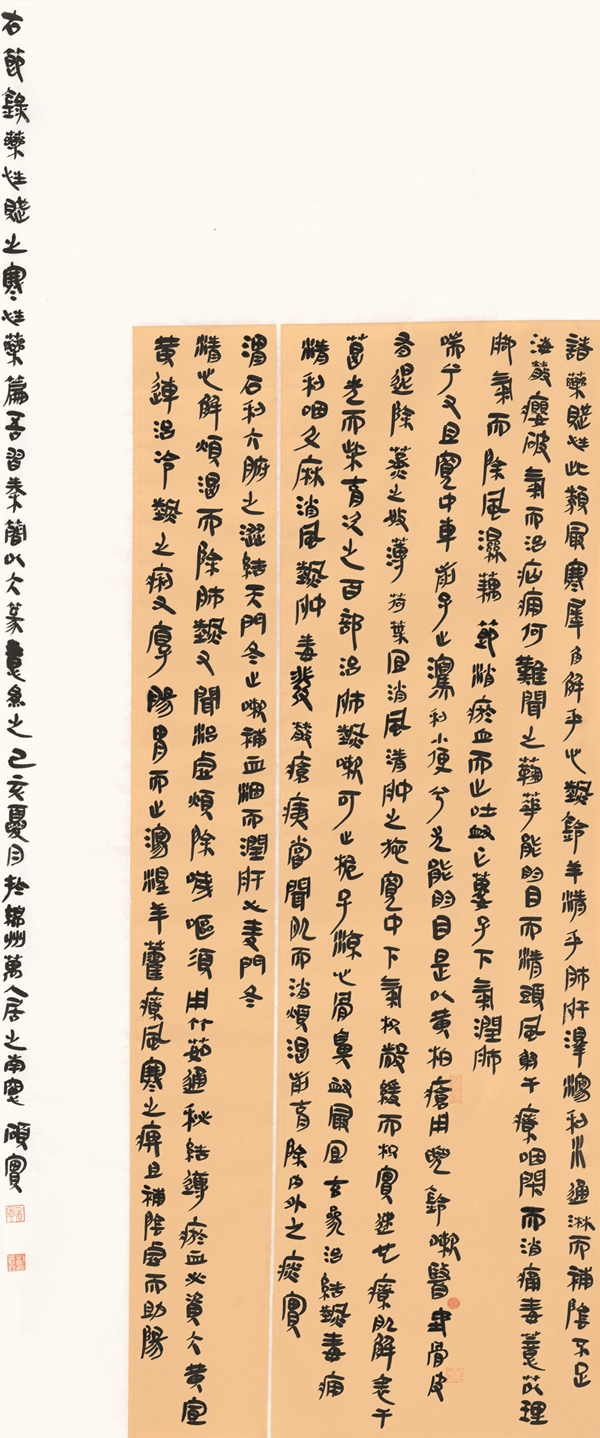 諸藥賦性此類最寒犀角解乎心熱羚羊清乎肺肝澤瀉利水通淋而補陰不足
海藻癭破氣而治疝痛何難聞之菊華能明目而清頭風射干療咽閉而消癰毒薏苡理
腳氣而除風濕藕節消瘀血而止吐衄瓜蔞子下氣潤肺
喘兮又且寬中車前子止瀉利小便兮尤能明目是以黃柏瘡用兜鈴嗽醫地骨皮
有退除蒸之效薄荷葉宜消風清腫之施寬中下氣枳殼緩而枳實速也療肌解表干
葛先而柴胡次之百部治肺熱嗽可止梔子涼心腎鼻衄最宜玄參治結熱毒癰
清利咽升麻消風熱腫毒發散瘡痍嘗聞肌而消煩渴前胡除內外之痰實
滑石利六腑之澀結天門冬止嗽補血涸而潤肝心麥門冬
清心解煩渴而除肺熱又聞治虛煩除噦嘔須用竹茹通秘結導瘀血必資大黃宣
黃連治冷熱之痢又厚腸胃而止瀉淫羊藿療風寒之痹且補陰虛而助陽
右節錄藥性賦之寒性藥篇吾習秦簡以大篆意為之己亥夏月於錦州萬人居之南窗碩實